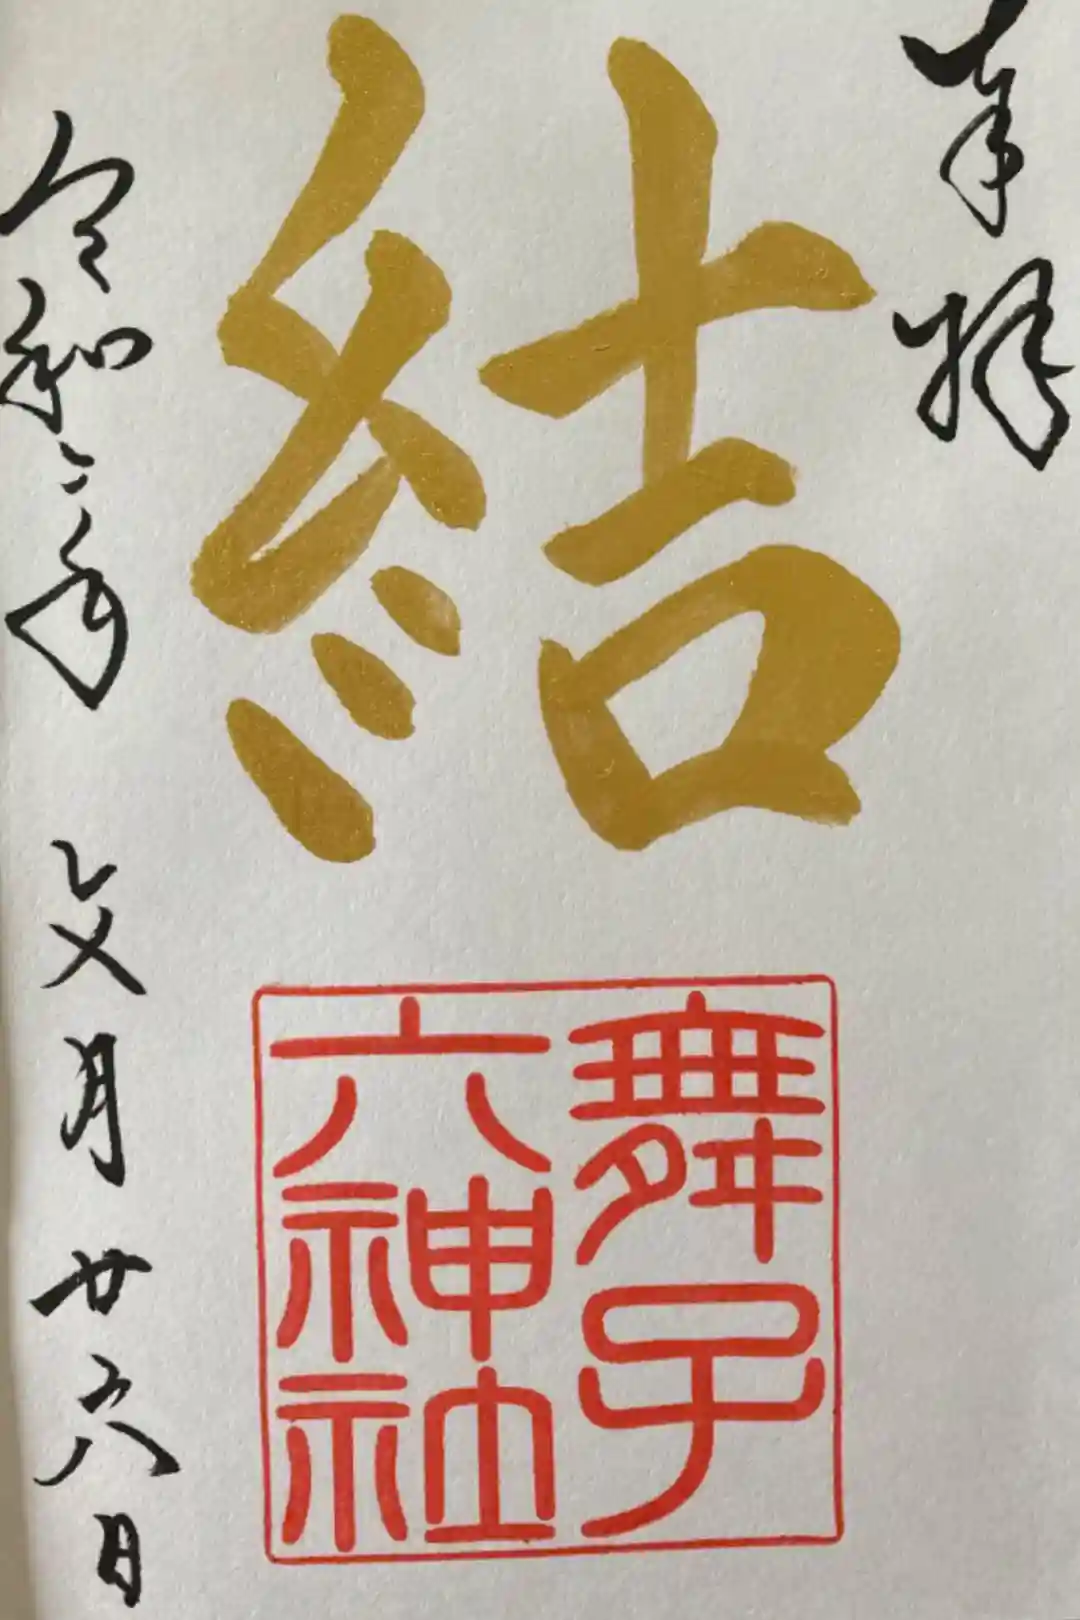 奉拝
結
舞子
六神社
令和二年 文月廿六日